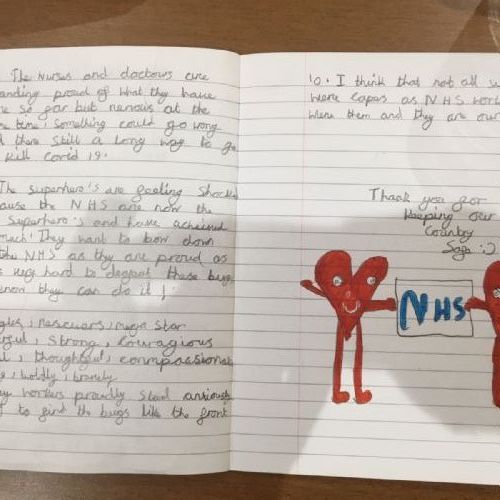 The Nurses and doctours are
anding proud of what they have
so far but nervous at the
time, Something could go wrong
there still a long way to go
kill covid 19.
The superhero's are feeling shocke
ause the NHS are now the
superhero's and have achieved
much! They want to bow down
the NHS as they are proud as
very hard to defeat these bugs
know they can do it!
gles, rescuers, mega star
strong, couragious
thoughtful, commpassionate
boldly, bravely
workers proudly stand anxiously
to find the bugs like the front
10. I think that not all su
were capes as NHS work
were them and they are our
Thank you for
keeping our
Country
Safe :)
NHS